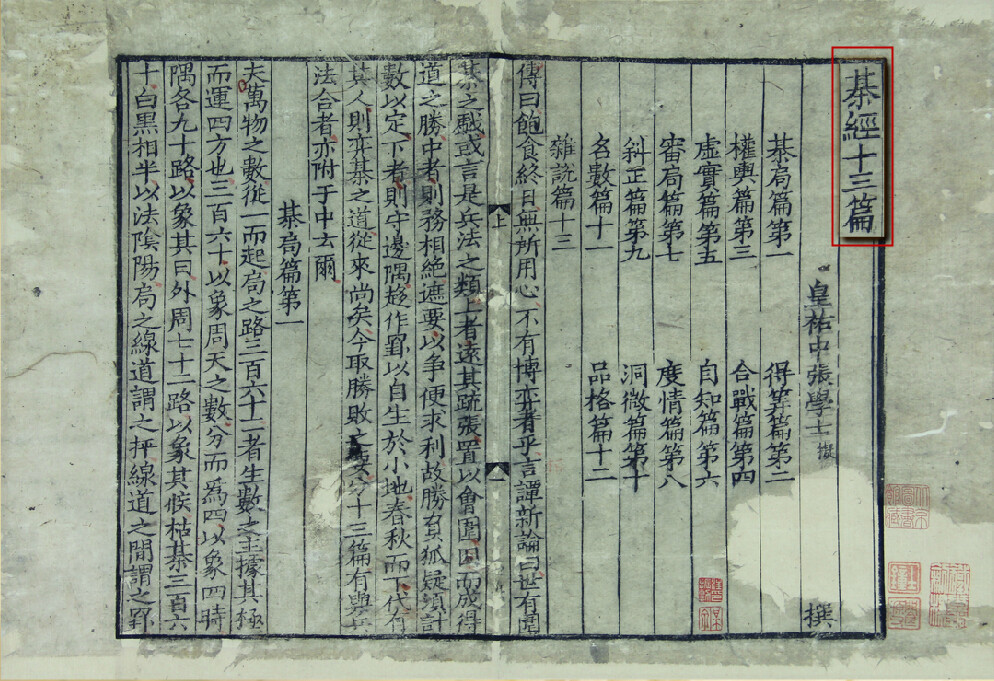 棊經十三篇
皇祐中張學士 撰
棊局篇第一 得筭篇第二
權輿篇第三 合戰篇第四
虛實篇第五 自知篇第六
審局篇第七 度情篇第八
斜正篇第九 洞微篇第十
名數篇十一 品格篇十二
雜說篇十三
傳曰飽食終日無所用心不有博弈者乎言譚新論曰世有圍
棊之戲或言是兵法之類上者遠其疏張置以會圍因而成得
道之勝中者則務相絶遮要以爭便求利故勝負狐疑須計
數以定下者則守邊隅趍作罫以自生於小地春秋而下代有
其人則弈棊之道從來尚矣今取勝敗之 十三篇有與兵
法合者亦附于中云爾
棊局篇第一
夫萬物之數從一而起局之路三百六十一者生數之主據其極
而運四方也三百六十以象周天之數分而爲四以象四時
隅各九十路以象其日外周七十二路以象其候枯棊三百六
十白黑相半以法陰陽局之線道謂之枰線道之間謂之罫
上